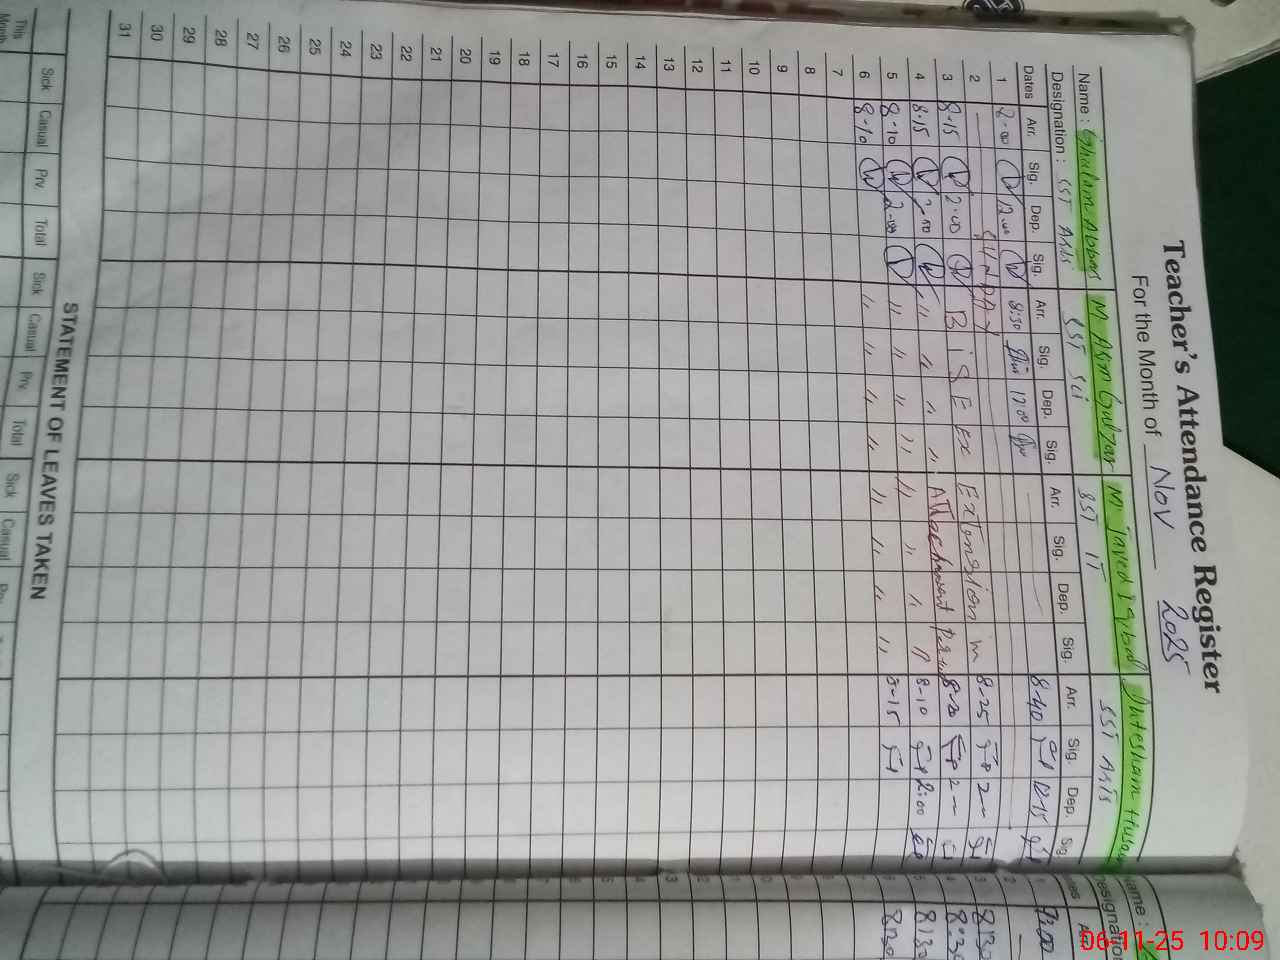 Teacher's Attendance Register
For the Month of Nov 2025
Name : Ghulam Abbas M. Asim Gulzar M. Javed Iqbal Intesham Husain
Designation : SST Arts SST Sci SST IT SST Arts
Dates Arr. Sig. Dep. Sig. Arr. Sig. Dep. Sig. Arr. Sig. Dep. Sig. Arr. Sig. Dep. Sig.
1 8-00 12-00 8:30 12:00 8-40 12-15
2 SUNDAY
3 8-15 2-00 BISE Ex Extension in 8-25 2-
4 8-15 2-00 " " " " Attachment 8-20 2-
5 8-10 2-00 " " " " " " " 8-10 2:00
6 8-10 " " " " " " " " 8-15
7
8
9
10
11
12
13
14
15
16
17
18
19
20
21
22
23
24
25
26
27
28
29
30
31
STATEMENT OF LEAVES TAKEN
Sick Casual Prv. Total Sick Casual Prv. Total Sick Casual
This Month
Name :
Designation
Arr
1 9:00
2 -
3 8:30
4 8:30
5 8:30
8:30
06-11-25 10:09